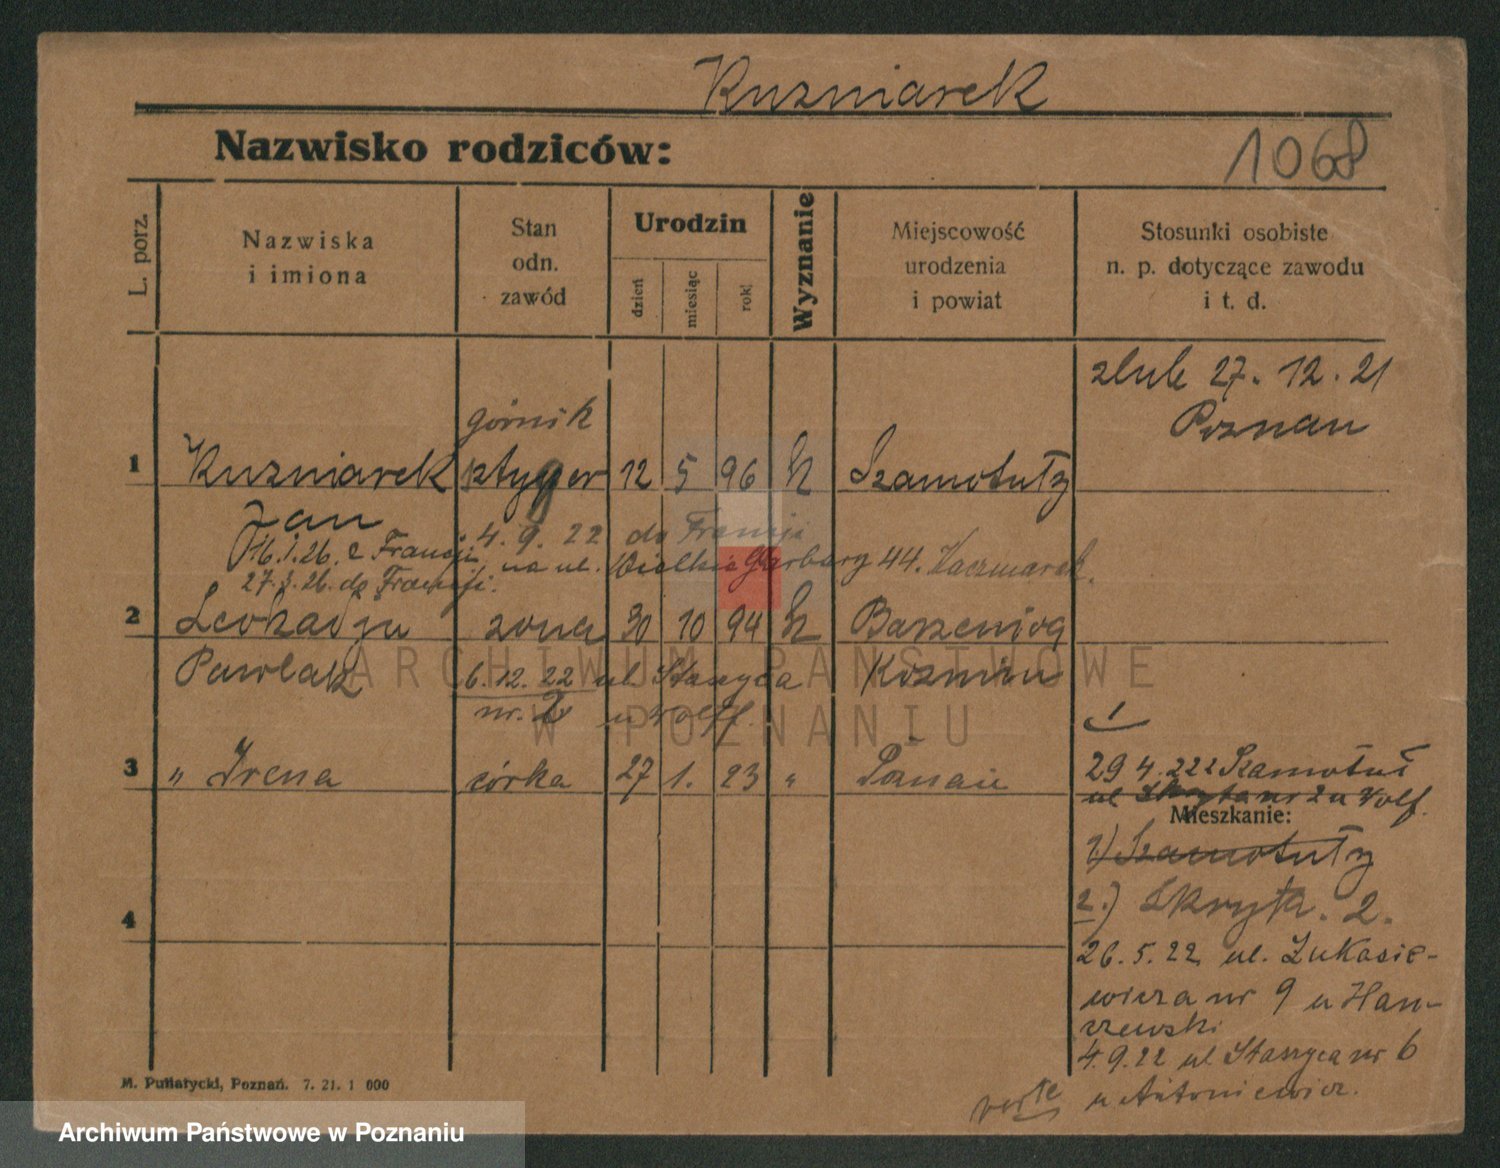 Kuzniarek
Nazwisko rodziców:
1068
L. porz.
Nazwiska
i imiona
Stan
odn.
zawód
Urodzin
dzień
miesiąc
rok
Wyznanie
Miejscowość
urodzenia
i powiat
Stosunki osobiste
n. p. dotyczące zawodu
i t. d.
zlub 27. 12. 21
Poznan
górnik
1 Kuzniarek sztyger 12 5 96 Szamotuły
Jan 4. 9. 22 do Francji
16.1.26. z Francji na ul. Wielkie Garbary 44. Kaczmarek.
27.3.26. do Francji.
2 Leokadja zona 30 10 94 Borzencice
Pawlak 6.12.22 ul. Staszyca Kozmin
nr. 2 u Wolff.
3 " Irena córka 27 1. 23 " Poznań
29 4. 222 Szamotuł
ul Skryta nr 2 u Wolf.
Mieszkanie:
1) Szamotuły
2.) Skryta. 2.
4
26. 5. 22 ul. Łukasie-
wicza nr 9 u Han-
czewski
4.9.22 ul Staszyca nr 6
u Antoniewicz.
verte
M. Putiatycki, Poznań. 7. 21. 1 000
ARCHIWUM PAŃSTWOWE
W POZNANIU
Archiwum Państwowe w Poznaniu